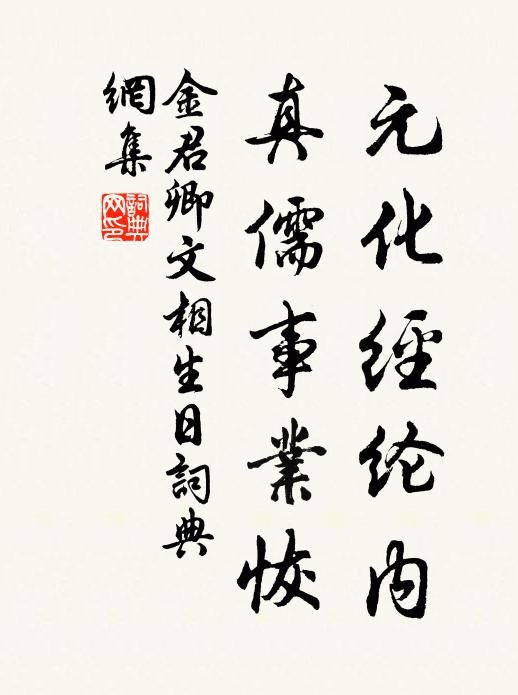 元化經纶内
真儒事業恢
金君卿文相生日詞典
網集
詞典
网印